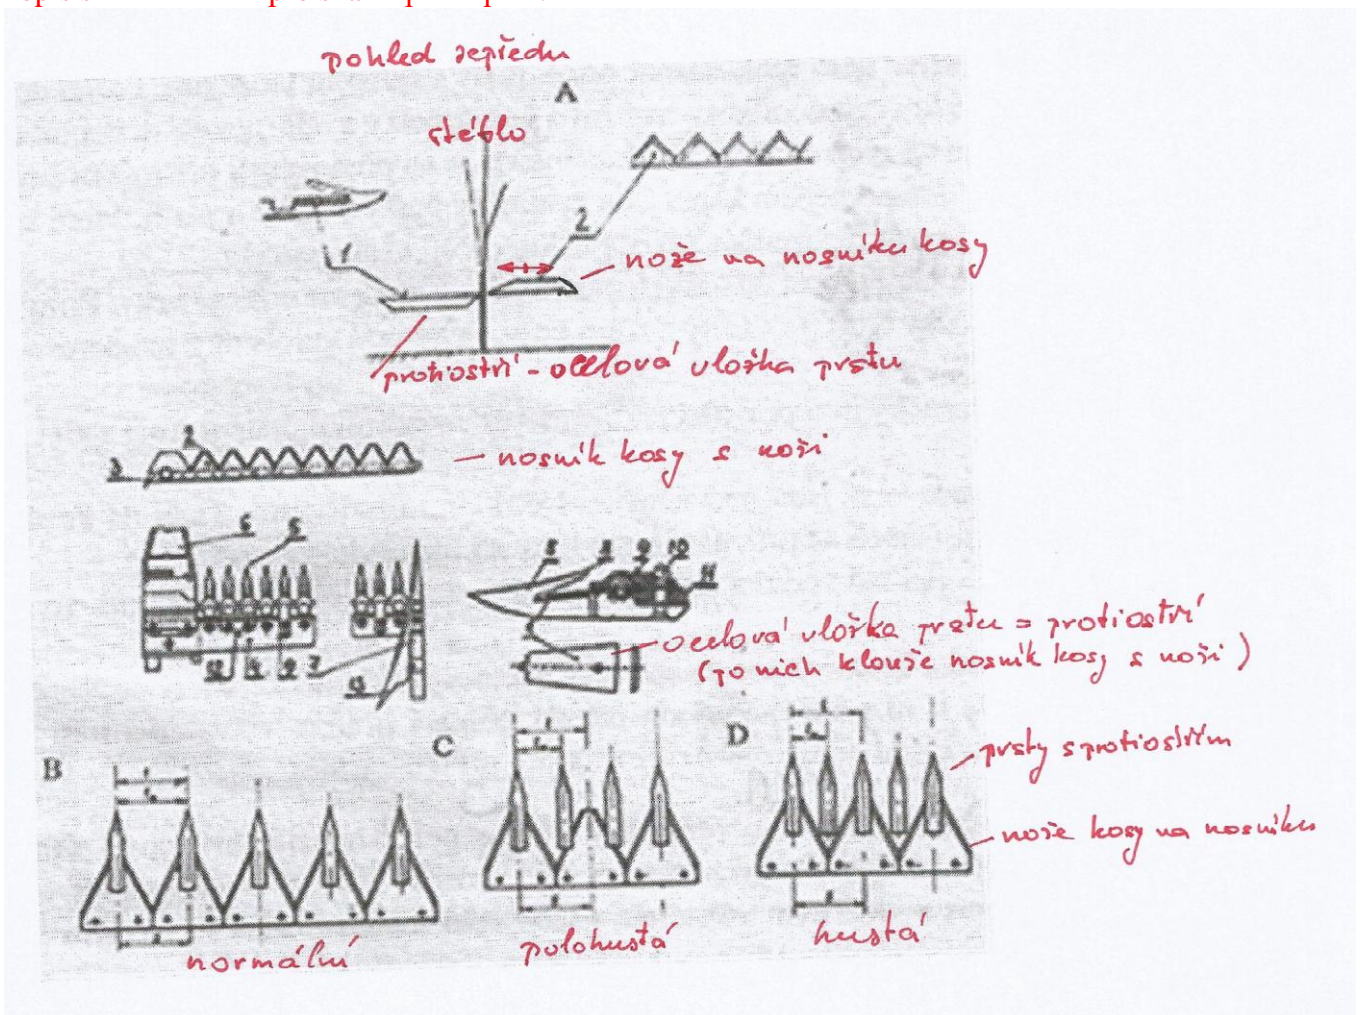 pohled zepředu
A
stéblo
2
1
nože na nosníku kosy
protiostří - ocelová vložka prstu
2
3
nosník kosy s noži
6 5
5 8 9 10
11
ocelová vložka prstu = protiostří
(po nich klouže nosník kosy s noži)
12 4 9 7
B
C
D
prsty s protiostřím
nože kosy na nosníku
normální
polohustá
hustá